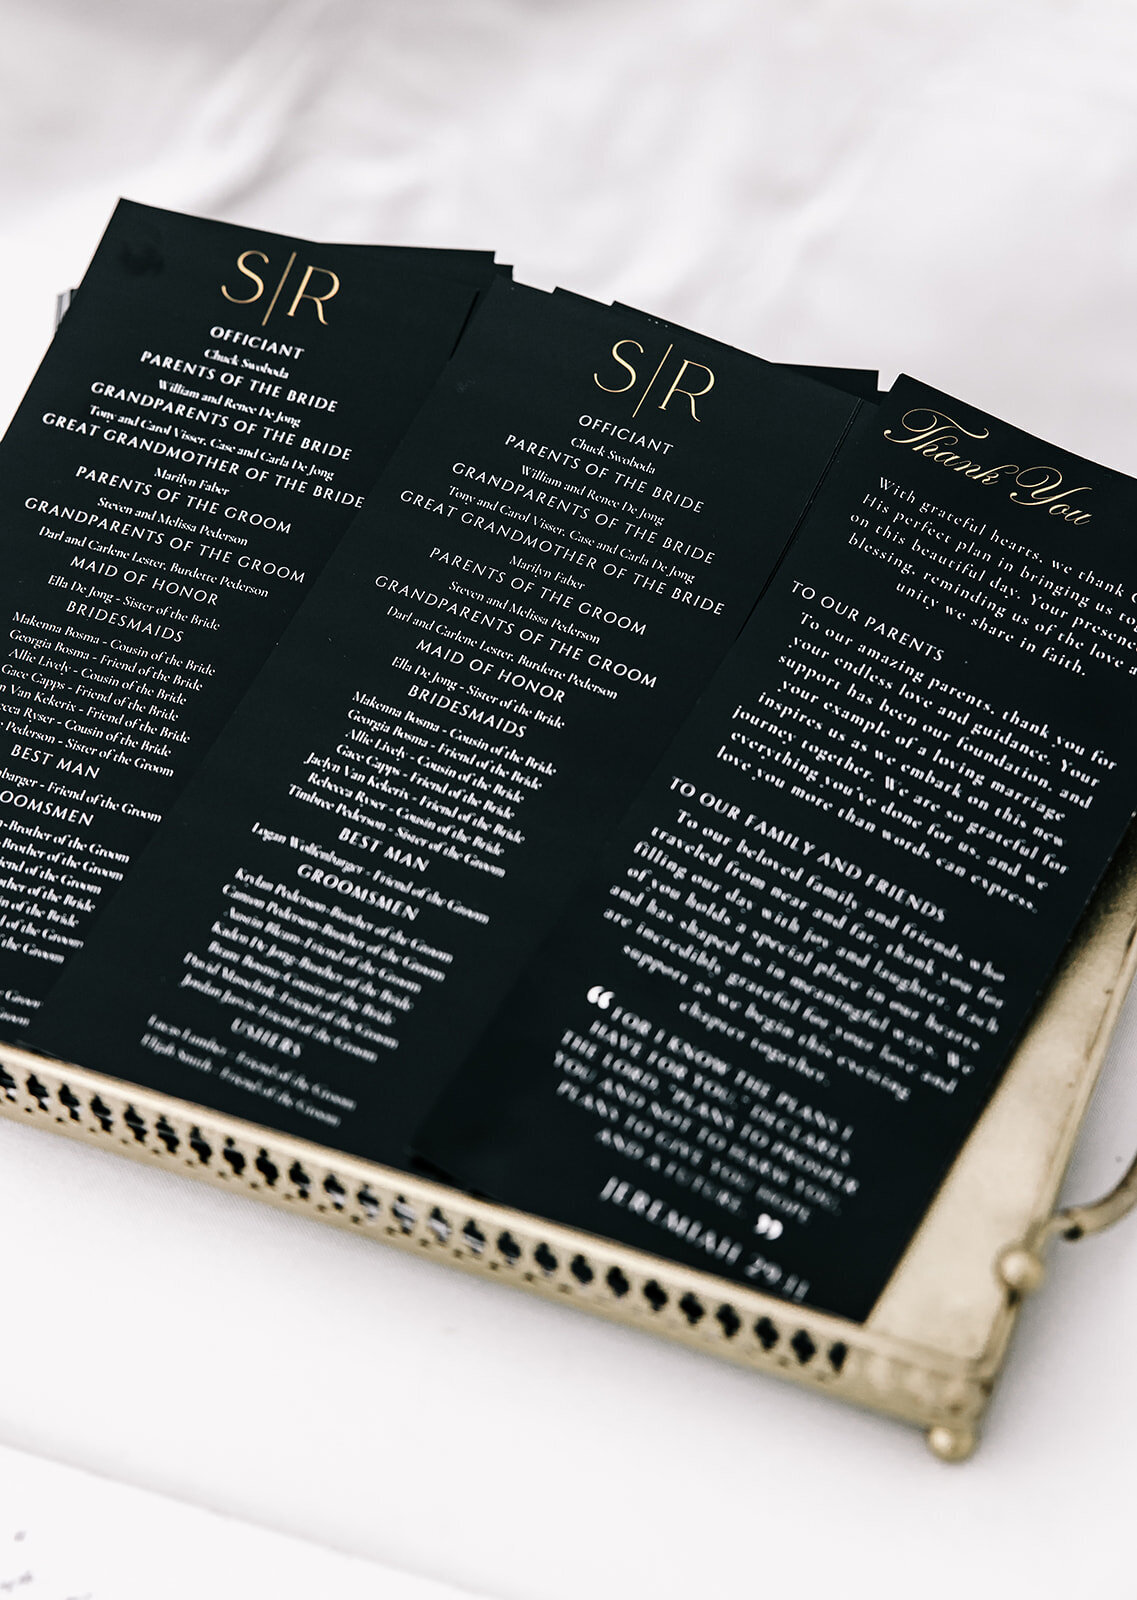 S|R
OFFICIANT
Chuck Swoboda
PARENTS OF THE BRIDE
William and Renee De Jong
GRANDPARENTS OF THE BRIDE
Tony and Carol Visser, Case and Carla De Jong
GREAT GRANDMOTHER OF THE BRIDE
Marilyn Faber
PARENTS OF THE GROOM
Steven and Melissa Pederson
GRANDPARENTS OF THE GROOM
Darl and Carlene Lester, Burdette Pederson
MAID OF HONOR
Ella De Jong - Sister of the Bride
BRIDESMAIDS
Makenna Bosma - Cousin of the Bride
Georgia Bosma - Friend of the Bride
Allie Lively - Cousin of the Bride
Gace Capps - Friend of the Bride
Van Kekerix - Friend of the Bride
Ryser - Cousin of the Bride
Pederson - Sister of the Groom
BEST MAN
- Friend of the Groom
- Brother of the Groom
- Brother of the Groom
of the Groom
of the Bride
of the Bride
of the Groom
of the Groom
S|R
OFFICIANT
Chuck Swoboda
PARENTS OF THE BRIDE
William and Renee De Jong
GRANDPARENTS OF THE BRIDE
Tony and Carol Visser, Case and Carla De Jong
GREAT GRANDMOTHER OF THE BRIDE
Marilyn Faber
PARENTS OF THE GROOM
Steven and Melissa Pederson
GRANDPARENTS OF THE GROOM
Darl and Carlene Lester, Burdette Pederson
MAID OF HONOR
Ella De Jong - Sister of the Bride
BRIDESMAIDS
Makenna Bosma - Cousin of the Bride
Georgia Bosma - Friend of the Bride
Allie Lively - Cousin of the Bride
Gace Capps - Friend of the Bride
Jaclyn Van Kekerix - Friend of the Bride
Rebecca Ryser - Cousin of the Bride
Timbree Pederson - Sister of the Groom
BEST MAN
Logan Wolfenbarger - Friend of the Groom
GROOMSMEN
Pederson-Brother of the Groom
Pederson-Brother of the Groom
Austin - Friend of the Groom
Kaden De Jong-Brother of the Bride
Bosma-Cousin of the Bride
David - Friend of the Groom
Jordan Jarvis-Friend of the Groom
USHERS
Lucas - Friend of the Groom
Elijah Smith - Friend of the Groom
Thank You
With grateful hearts, we thank
His perfect plan in bringing us
on this beautiful day. Your presence
blessing, reminding us of the love
unity we share in faith.
TO OUR PARENTS
To our amazing parents, thank you for
your endless love and guidance. Your
support has been our foundation, and
your example of a loving marriage
inspires us as we embark on this new
journey together. We are so grateful for
everything you've done for us, and we
love you more than words can express.
TO OUR FAMILY AND FRIENDS
To our beloved family and friends who
traveled from near and far, thank you for
filling our day with joy and laughter. Each
of you holds a special place in our hearts
and has shaped us in meaningful ways. We
are incredibly grateful for your love and
support as we begin this exciting
chapter together.
“ FOR I KNOW THE PLANS I
HAVE FOR YOU,” DECLARES
THE LORD, “PLANS TO PROSPER
YOU AND NOT TO HARM YOU,
PLANS TO GIVE YOU HOPE
AND A FUTURE. ”
JEREMIAH 29:11